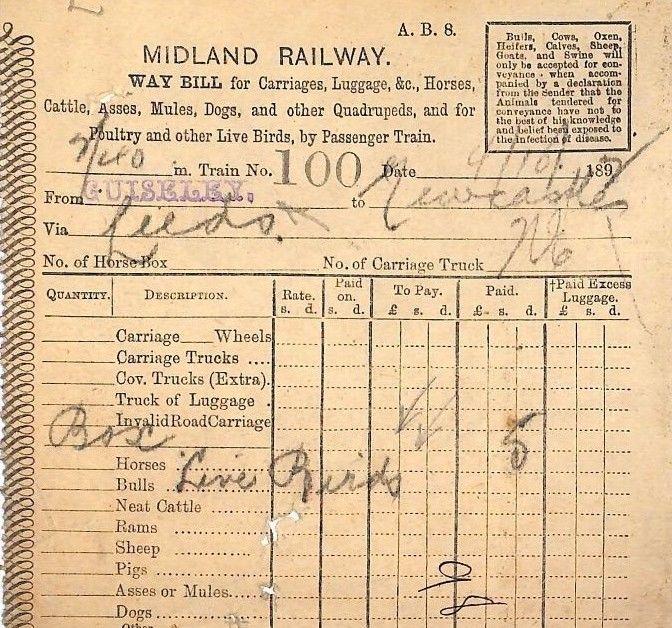 A. B. 8.
MIDLAND RAILWAY.
WAY BILL for Carriages, Luggage, &c., Horses,
Cattle, Asses, Mules, Dogs, and other Quadrupeds, and for
Poultry and other Live Birds, by Passenger Train.
Bulls, Cows, Oxen,
Heifers, Calves, Sheep,
Goats, and Swine will
only be accepted for con-
veyance when accom-
panied by a declaration
from the Sender that the
Animals tendered for
conveyance have not to
the best of his knowledge
and belief been exposed to
the infection of disease.
m. Train No. 100 Date 189
From GUISELEY. to Newcastle
Via Leeds.
No. of Horse Box No. of Carriage Truck
QUANTITY. DESCRIPTION. Rate. Paid on. To Pay. Paid. †Paid Excess Luggage.
s. d. s. d. £ s. d. £ s. d. £ s. d.
Carriage Wheels
Carriage Trucks ....
Cov. Trucks (Extra).
Truck of Luggage .
Invalid Road Carriage
Box 5
Horses
Live Birds
Bulls
Neat Cattle
Rams
Sheep
Pigs
Asses or Mules
Dogs
Other